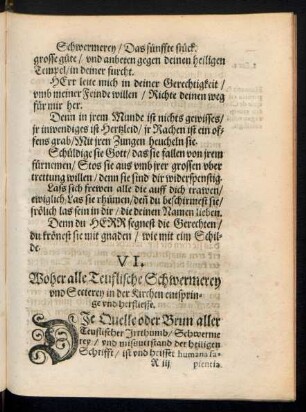 Schwermerey / Das fünffte stück.
grosse güte / vnd anbeten gegen deinen heiligen
Tempel / in deiner furcht.
HErr leite mich in deiner Gerechtigkeit /
vmb meiner Feinde willen / Richte deinen weg
für mir her.
Denn in jrem Munde ist nichts gewisses /
jr inwendiges ist Hertzleid / jr Rachen ist ein of-
fens grab / Mit jren Zungen heucheln sie.
Schüldige sie Gott / das sie fallen von jrem
fürnemen / Stos sie aus vmb jrer grossen vber
trettung willen / denn sie sind dir widerspenstig.
Lass sich frewen alle die auff dich trawen /
ewiglich Las sie rhümen / deñ du beschirmest sie /
frölich las sein in dir / die deinen Namen lieben.
Denn du HERR segnest die Gerechten /
du krönest sie mit gnaden / wie mit eim Schil-
de.
VI.
Woher alle Teuflische Schwermerey
vnd Secterey in der Kirchen entsprin-
ge vnd herfliesse.
DIe Quelle oder Brun aller
Teuflischer Irrthumb / Schwerme
rey / vnd misuerstand der heiligen
Schrifft / ist vnd heisset humana sa-
R iij pientia.